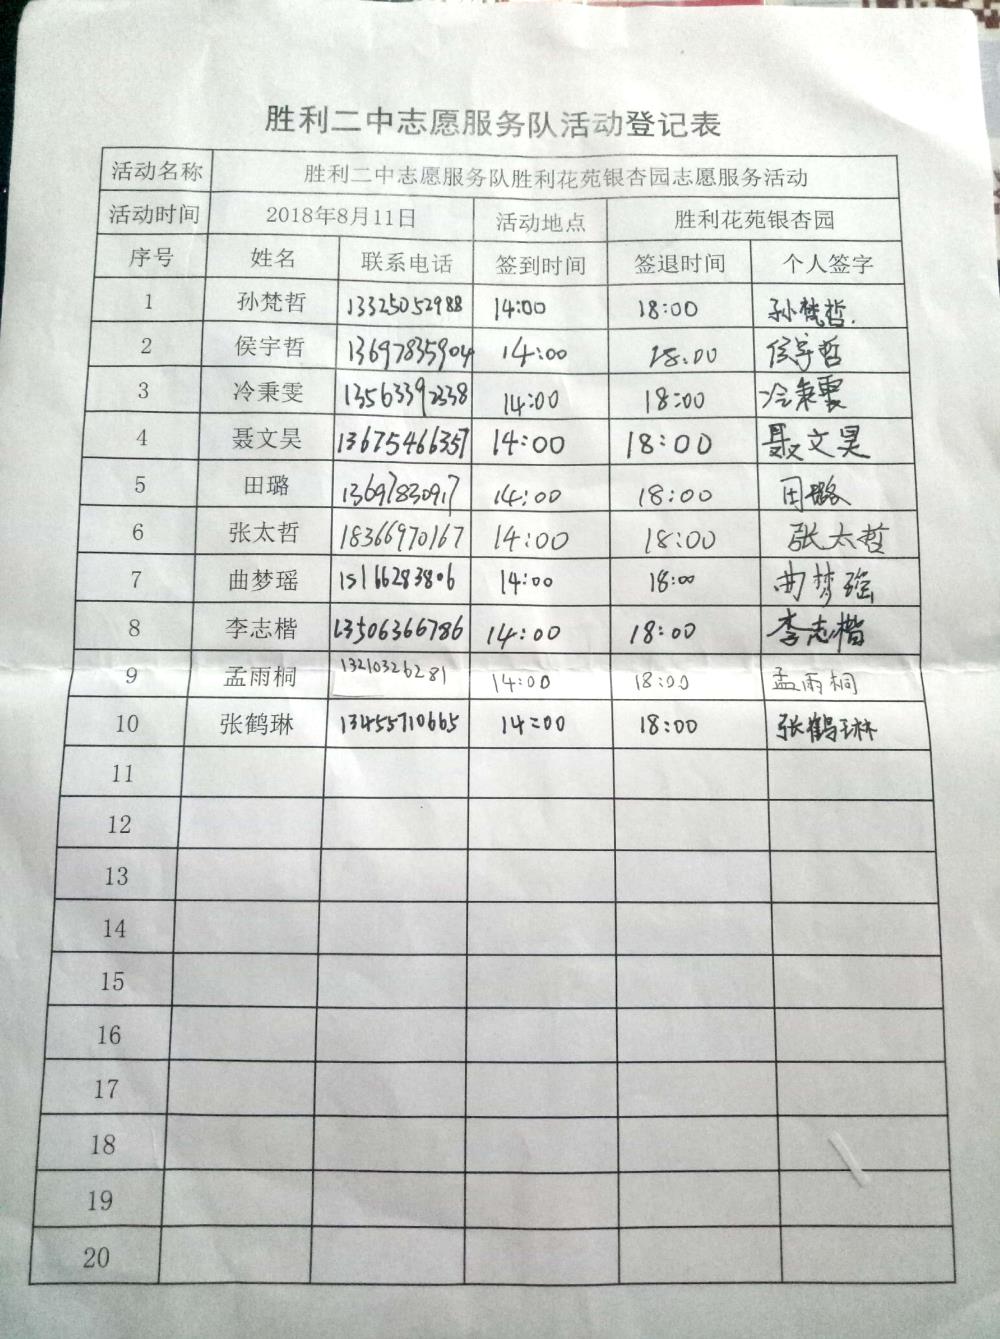 胜利二中志愿服务队活动登记表
活动名称 胜利二中志愿服务队胜利花苑银杏园志愿服务活动
活动时间 2018年8月11日 活动地点 胜利花苑银杏园
序号 姓名 联系电话 签到时间 签退时间 个人签字
1 孙梵哲 13325052988 14:00 18:00 孙梵哲.
2 侯宇哲 13697835904 14:00 18:00 侯宇哲
3 冷秉雯 13563392338 14:00 18:00 冷秉雯
4 聂文昊 13675466357 14:00 18:00 聂文昊
5 田璐 13697830917 14:00 18:00 田璐
6 张太哲 18366970167 14:00 18:00 张太哲
7 曲梦瑶 15166283806 14:00 18:00 曲梦瑶
8 李志楷 13506366786 14:00 18:00 李志楷
9 孟雨桐 13210326281 14:00 18:00 孟雨桐
10 张鹤琳 13455710665 14:00 18:00 张鹤琳
11
12
13
14
15
16
17
18
19
20